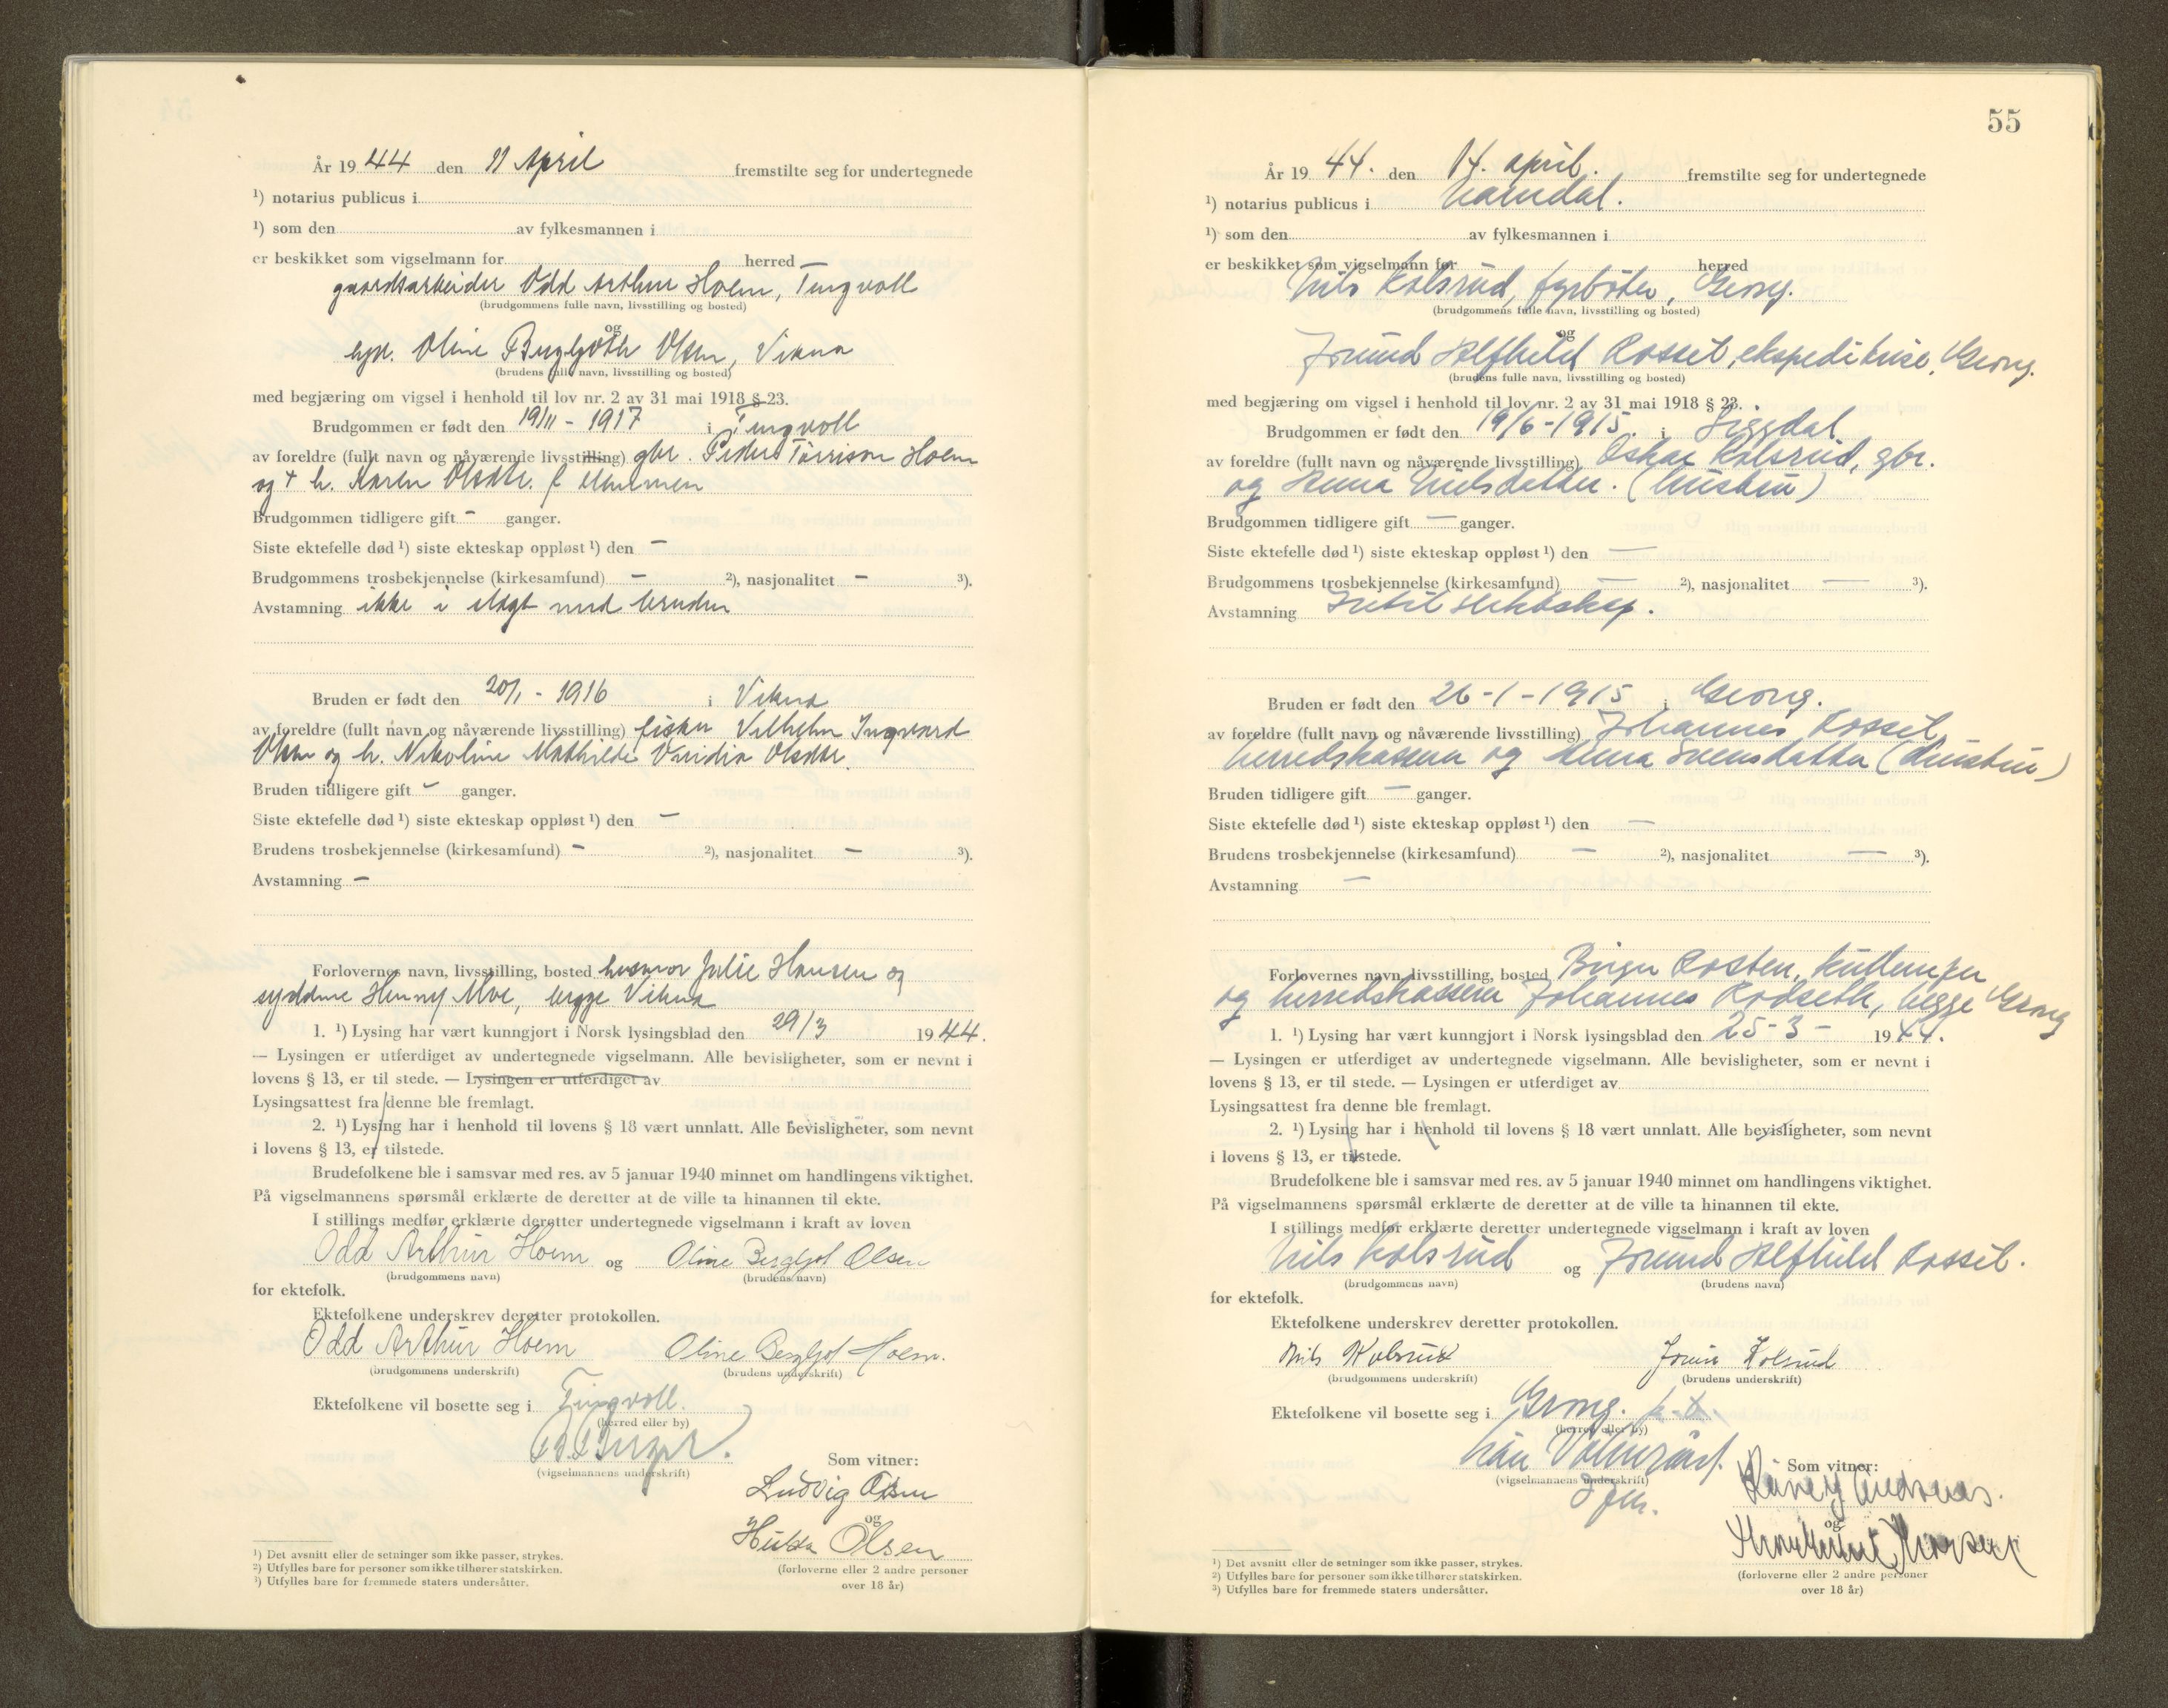 År 19 44 den 11 April fremstilte seg for undertegnede
¹) notarius publicus i
¹) som den av fylkesmannen i
er beskikket som vigselmann for herred —
gaardsarbeider Odd Arthur Hoem, Tingvoll
(brudgommens fulle navn, livsstilling og bosted)
og
Oline Bergljoth Olsen, Vikna
(brudens fulle navn, livsstilling og bosted)
med begjæring om vigsel i henhold til lov nr. 2 av 31 mai 1918 § 23.
Brudgommen er født den 19/11 - 1917 i Tingvoll
av foreldre (fullt navn og nåværende livsstilling) gbr. Peder Tørrisson Hoem
og + h. Karen Olsdtr. f.
Brudgommen tidligere gift - ganger.
Siste ektefelle død ¹) siste ekteskap oppløst ¹) den —
Brudgommens trosbekjennelse (kirkesamfund) — ²), nasjonalitet — ³).
Avstamning ikke i slegt med bruden
Bruden er født den 20/1 - 1916 i Vikna
av foreldre (fullt navn og nåværende livsstilling) fisker Vilhelm Ingvard
Olsen og h. Nikoline Mathilde Olsdtr.
Bruden tidligere gift - ganger.
Siste ektefelle død ¹) siste ekteskap oppløst ¹) den —
Brudens trosbekjennelse (kirkesamfund) — ²), nasjonalitet — ³).
Avstamning —
Forlovernes navn, livsstilling, bosted husmor Julie Hansen og
syddme Henny Moe, begge Vikna
1. ¹) Lysing har vært kunngjort i Norsk lysingsblad den 29/3 19 44.
— Lysingen er utferdiget av undertegnede vigselmann. Alle bevisligheter, som er nevnt i
lovens § 13, er til stede. — Lysingen er utferdiget av
Lysingsattest fra denne ble fremlagt.
2. ¹) Lysing har i henhold til lovens § 18 vært unnlatt. Alle bevisligheter, som nevnt
i lovens § 13, er tilstede.
Brudefolkene ble i samsvar med res. av 5 januar 1940 minnet om handlingens viktighet.
På vigselmannens spørsmål erklærte de deretter at de ville ta hinannen til ekte.
I stillings medfør erklærte deretter undertegnede vigselmann i kraft av loven
Odd Arthur Hoem og Oline Bergljot Olsen
(brudgommens navn) (brudens navn)
for ektefolk.
Ektefolkene underskrev deretter protokollen.
Odd Arthur Hoem Oline Bergljot Hoem.
(brudgommens underskrift) (brudens underskrift)
Ektefolkene vil bosette seg i Tingvoll.
(herred eller by)
(vigselmannens underskrift)
Som vitner:
Ludvig Olsen
og
Hulda Olsen
(forloverne eller 2 andre personer
over 18 år)
¹) Det avsnitt eller de setninger som ikke passer, strykes.
²) Utfylles bare for personer som ikke tilhører statskirken.
³) Utfylles bare for fremmede staters undersåtter.
55
År 19 44. den 14. april. fremstilte seg for undertegnede
¹) notarius publicus i Namdal.
¹) som den av fylkesmannen i
er beskikket som vigselmann for herred
Nils Kolsrud, fyrbøter, Grong.
(brudgommens fulle navn, livsstilling og bosted)
og
Jorund Alfhild Rosset, ekspeditrise, Grong.
(brudens fulle navn, livsstilling og bosted)
med begjæring om vigsel i henhold til lov nr. 2 av 31 mai 1918 § 23.
Brudgommen er født den 19/6-1915. i Siggdal
av foreldre (fullt navn og nåværende livsstilling) Oskar Kolsrud, gbr.
og Anna Nielsdatter. (hustru)
Brudgommen tidligere gift — ganger.
Siste ektefelle død ¹) siste ekteskap oppløst ¹) den —
Brudgommens trosbekjennelse (kirkesamfund) — ²), nasjonalitet — ³).
Avstamning Intet slektskap.
Bruden er født den 26-1-1915 i Grong.
av foreldre (fullt navn og nåværende livsstilling) Johannes Rosset,
herredskasserer og Anna Svensdatter (hustru)
Bruden tidligere gift — ganger.
Siste ektefelle død ¹) siste ekteskap oppløst ¹) den —
Brudens trosbekjennelse (kirkesamfund) — ²), nasjonalitet — ³).
Avstamning —
Forlovernes navn, livsstilling, bosted Birger Rosten,
og herredskasserer Johannes Rodseth, begge Grong
1. ¹) Lysing har vært kunngjort i Norsk lysingsblad den 25-3- 19 44.
— Lysingen er utferdiget av undertegnede vigselmann. Alle bevisligheter, som er nevnt i
lovens § 13, er til stede. — Lysingen er utferdiget av
Lysingsattest fra denne ble fremlagt.
2. ¹) Lysing har i henhold til lovens § 18 vært unnlatt. Alle bevisligheter, som nevnt
i lovens § 13, er tilstede.
Brudefolkene ble i samsvar med res. av 5 januar 1940 minnet om handlingens viktighet.
På vigselmannens spørsmål erklærte de deretter at de ville ta hinannen til ekte.
I stillings medfør erklærte deretter undertegnede vigselmann i kraft av loven
Nils Kolsrud og Jorund Alfhild Rosset.
(brudgommens navn) (brudens navn)
for ektefolk.
Ektefolkene underskrev deretter protokollen.
Nils Kolsrud Kolsrud
(brudgommens underskrift) (brudens underskrift)
Ektefolkene vil bosette seg i Grong. p.t.
(herred eller by)
(vigselmannens underskrift)
Som vitner:
og
(forloverne eller 2 andre personer
over 18 år)
¹) Det avsnitt eller de setninger som ikke passer, strykes.
²) Utfylles bare for personer som ikke tilhører statskirken.
³) Utfylles bare for fremmede staters undersåtter.